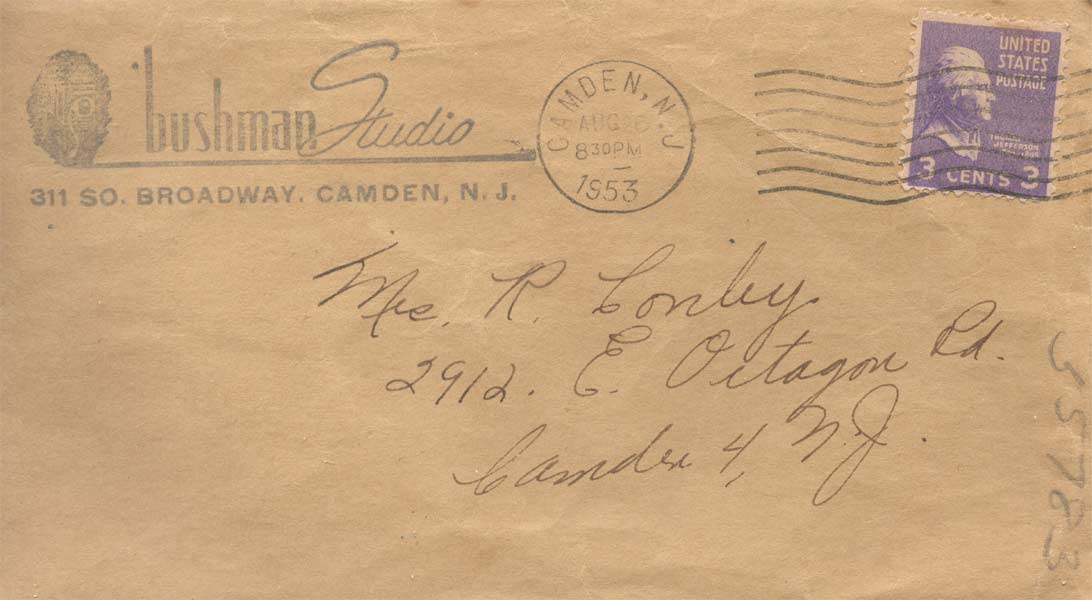 bushman Studio
311 SO. BROADWAY. CAMDEN, N. J.
CAMDEN, N.J
AUG 6
8 30 PM
1953
UNITED
STATES
POSTAGE
THOMAS
JEFFERSON
3 CENTS 3
Mrs. R. Conley
2912. E. Octagon Rd.
Camden 4, N.J.